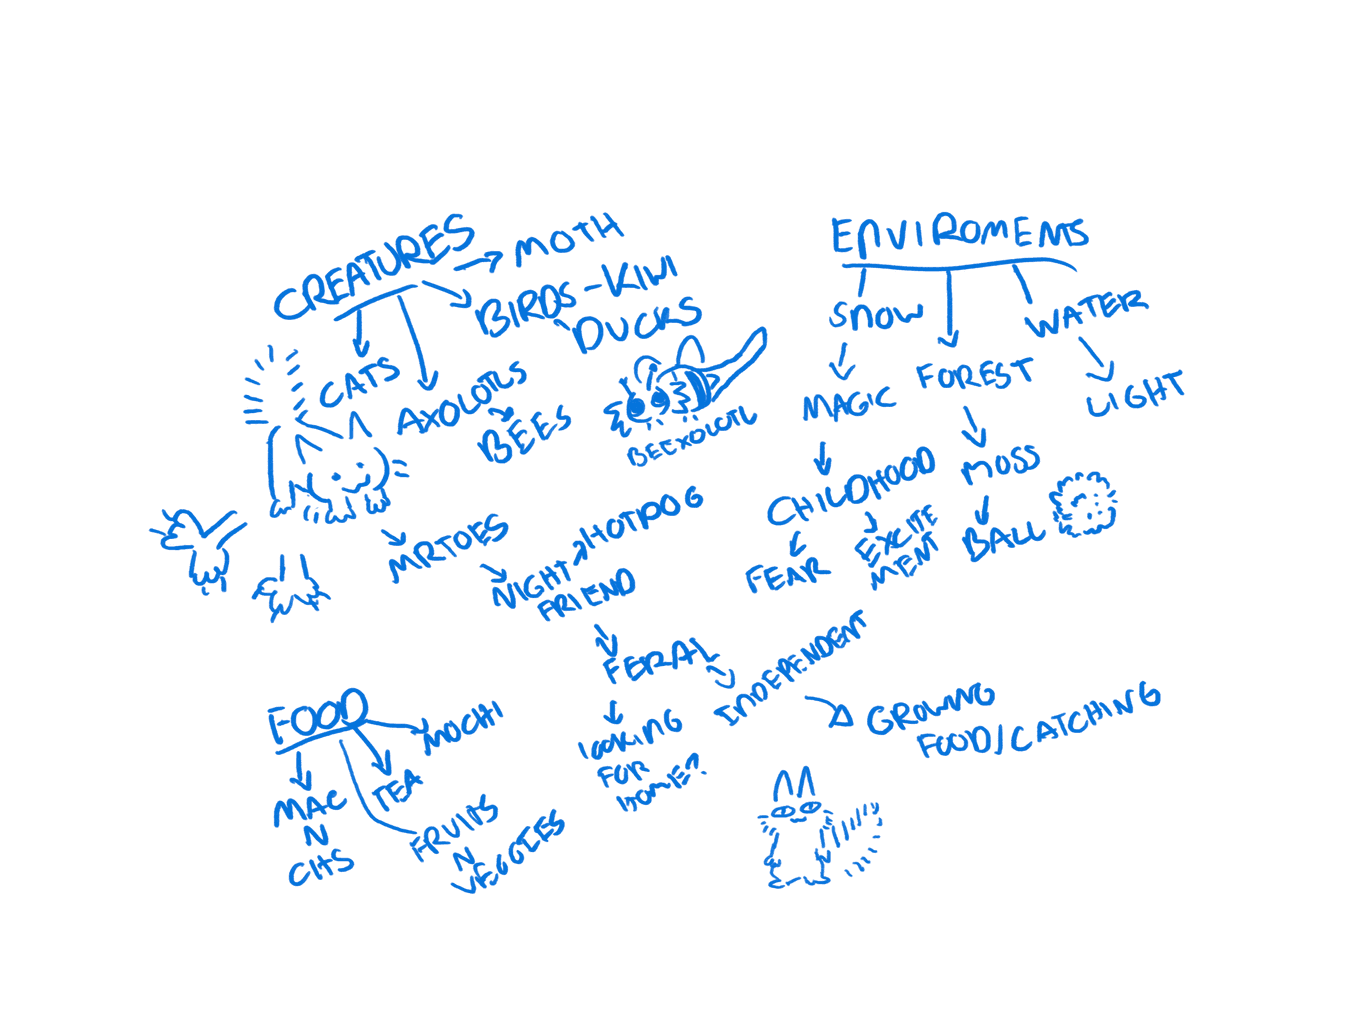 CREATURES
MOTH
BIRDS - KIWI
DUCKS
CATS
AXOLOTLS
BEES
BEEXOLOTL
MRTOES
NIGHT
FRIEND
HOTDOG
FERAL
LOOKING
FOR
HOME?
INDEPENDENT
GROWING
FOOD/CATCHING
ENVIROMENTS
SNOW
MAGIC
CHILDHOOD
FEAR
EXCITE
MENT
FOREST
MOSS
BALL
WATER
LIGHT
FOOD
MOCHI
TEA
MAC
N
CHS
FRUITS
N
VEGGIES